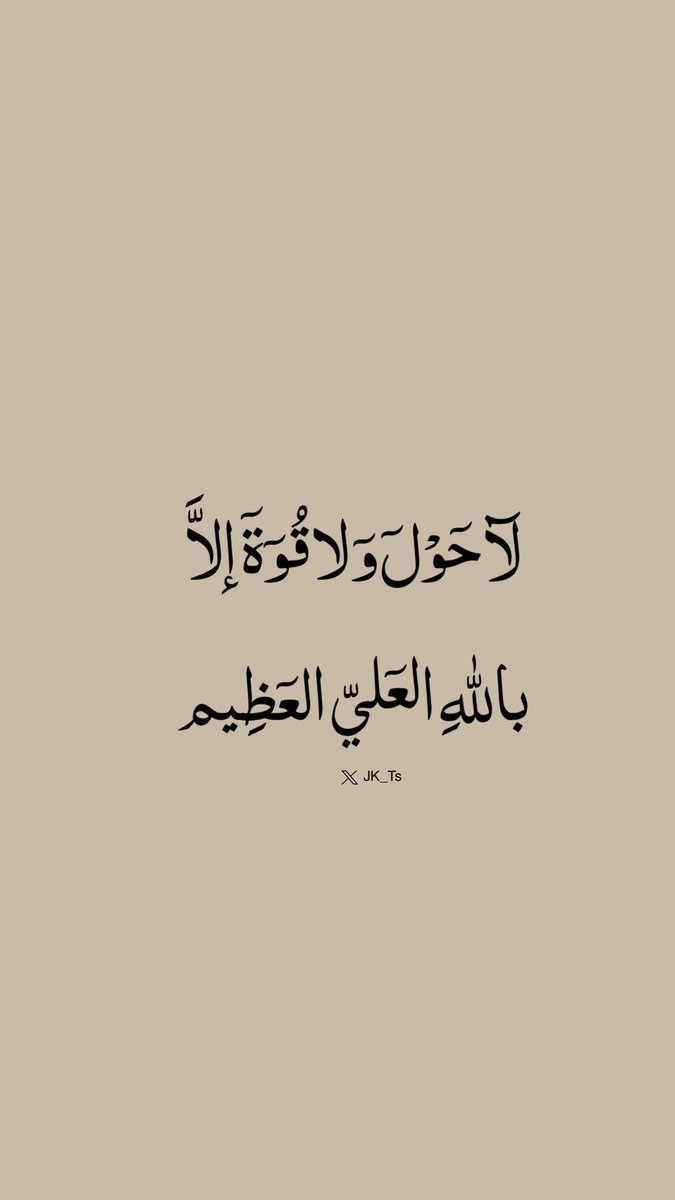 لَآ حَوْلَ وَلا قُوَةَ إلاَّ
باللهِ العَليّ العَظِيم
X JK_Ts